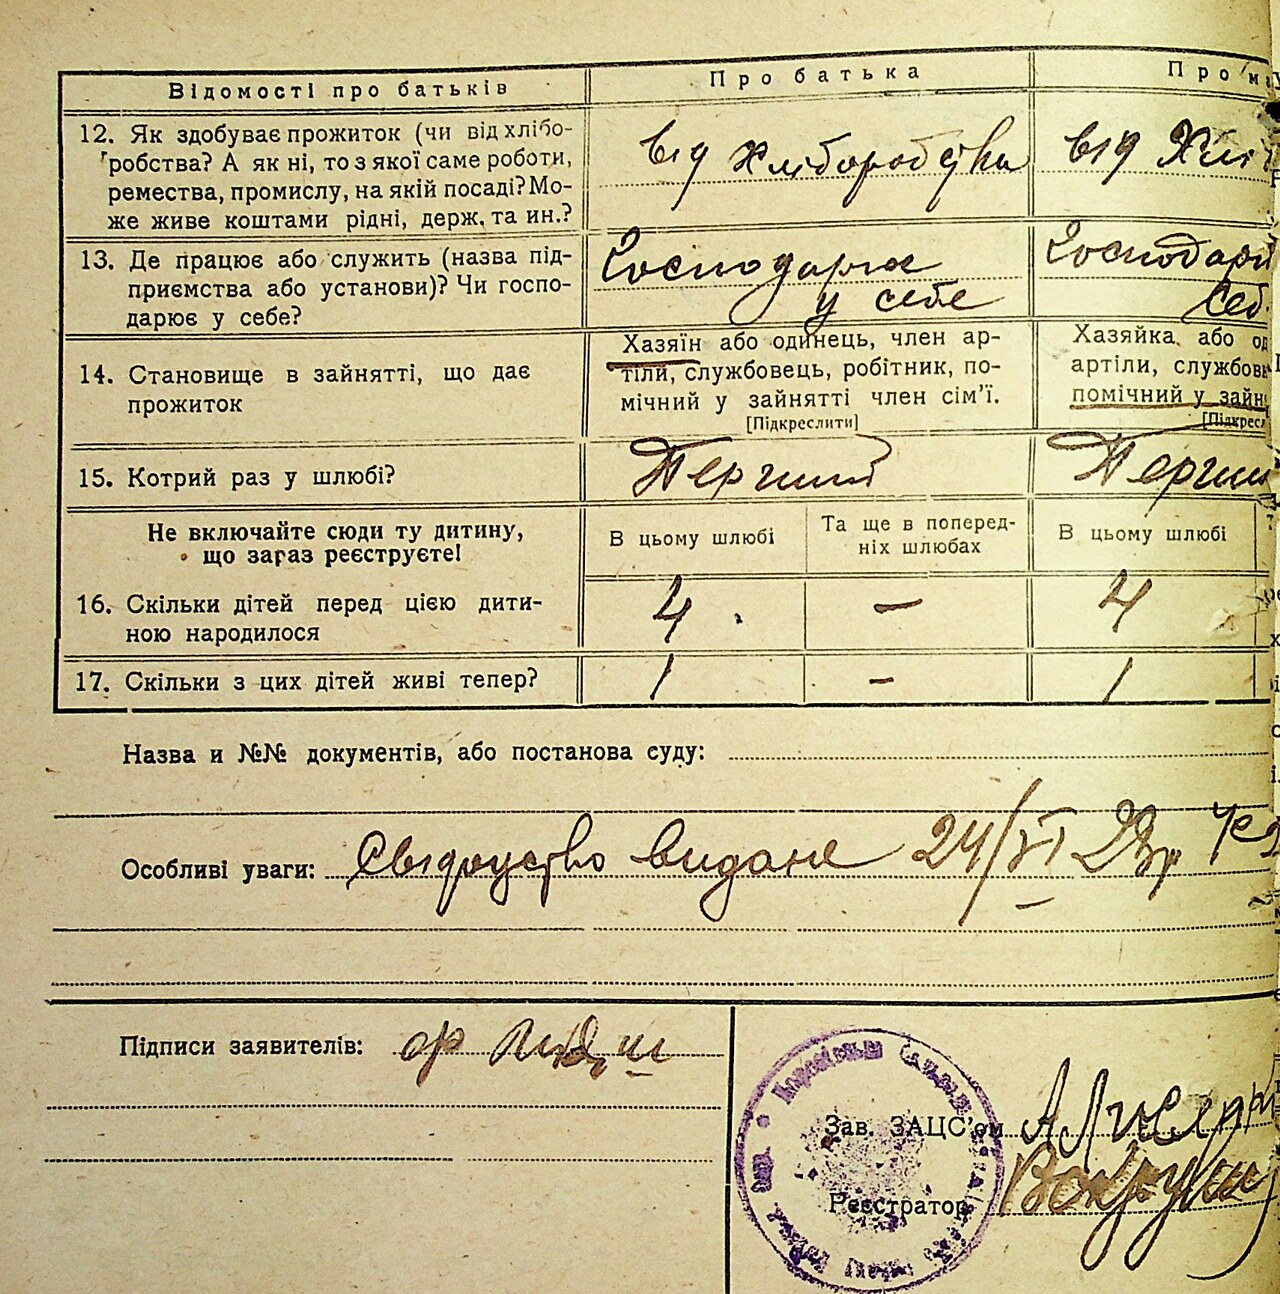 Відомості про батьків
Про батька
Про ма
12. Як здобуває прожиток (чи від хлібо-
робства? А як ні, то з якої саме роботи,
ремества, промислу, на якій посаді? Мо-
же живе коштами рідні, держ. та ин.?
від хліборобства
від Хлі
13. Де працює або служить (назва під-
приємства або установи)? Чи госпо-
дарює у себе?
Господарює
у себе
Господарю
себ
14. Становище в зайнятті, що дає
прожиток
Хазяїн або одинець, член ар-
тіли, службовець, робітник, по-
мічний у зайнятті член сім'ї.
[Підкреслити]
Хазяйка або од
артіли, службов
помічний у зайн
[Підкресл
15. Котрий раз у шлюбі?
Перший
Перший
Не включайте сюди ту дитину,
що зараз реєструєте!
В цьому шлюбі
Та ще в поперед-
ніх шлюбах
В цьому шлюбі
16. Скільки дітей перед цією дити-
ною народилося
4
—
4
17. Скільки з цих дітей живі тепер?
1
—
1
Назва и №№ документів, або постанова суду:
Особливі уваги: Свідоцтво видане 24/VI 29р №2
Підписи заявителів:
Зав. ЗАЦС'ом
Реєстратор